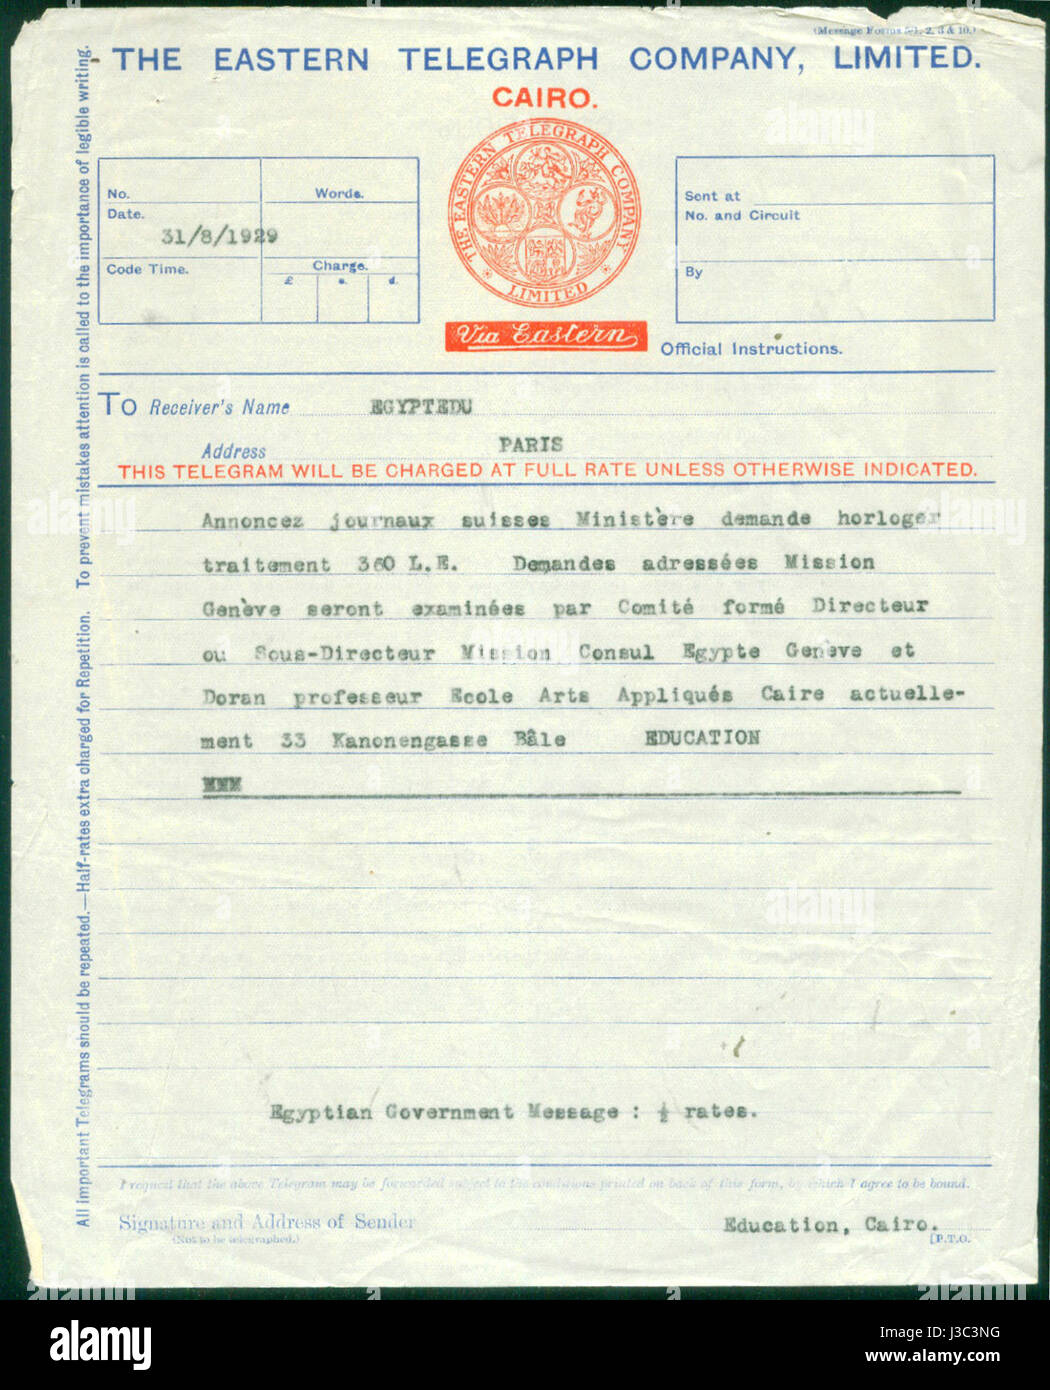 (Message Forms 5/1, 2, 3 & 10.)
THE EASTERN TELEGRAPH COMPANY, LIMITED.
CAIRO.
THE EASTERN TELEGRAPH COMPANY
LIMITED
Via Eastern
No.
Words.
Date.
31/8/1929
Code Time.
Charge.
£ s. d.
Sent at
No. and Circuit
By
Official Instructions.
To Receiver's Name EGYPTEDU
Address PARIS
THIS TELEGRAM WILL BE CHARGED AT FULL RATE UNLESS OTHERWISE INDICATED.
Annoncez journaux suisses Ministère demande horloger
traitement 360 L.E. Demandes adressées Mission
Genève seront examinées par Comité formé Directeur
ou Sous-Directeur Mission Consul Egypte Genève et
Doran professeur Ecole Arts Appliqués Caire actuelle-
ment 33 Kanonengasse Bâle EDUCATION
Egyptian Government Message : ½ rates.
I request that the above Telegram may be forwarded subject to the conditions printed on back of this form, by which I agree to be bound.
Signature and Address of Sender
(Not to be telegraphed.)
Education, Cairo.
[P.T.O.
All important Telegrams should be repeated.—Half-rates extra charged for Repetition. To prevent mistakes attention is called to the importance of legible writing.
alamy
Image ID: J3C3NG
www.alamy.com